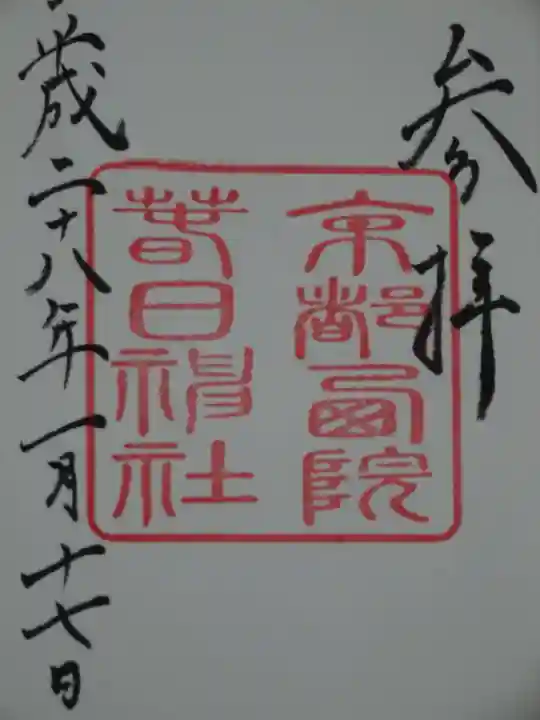 参拝
京都西院
春日神社
成二十八年一月十七日